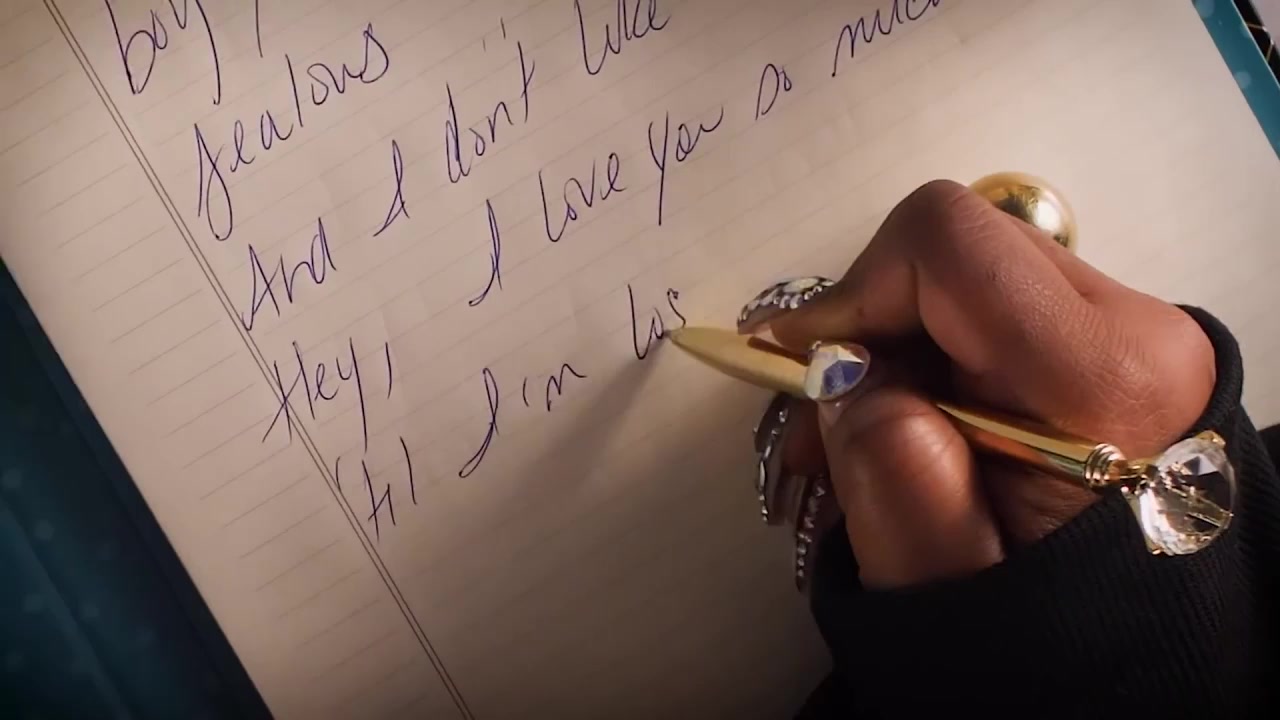 boy,
Jealous
And I don't like
Hey, I love you so much
'til I'm los